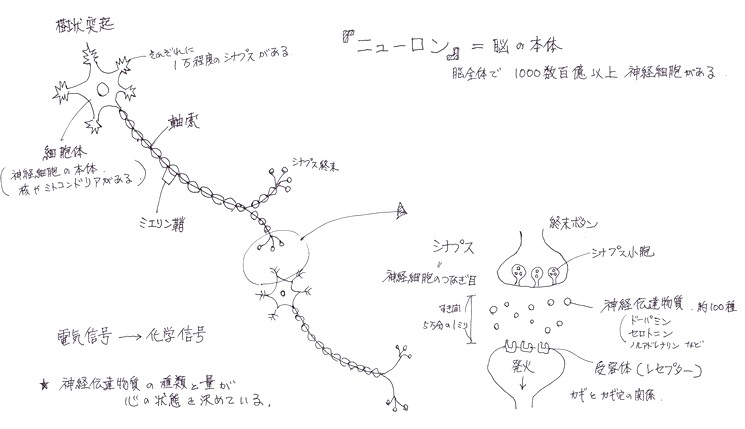 樹状突起
それぞれに
1万程度のシナプスがある
『ニューロン』= 脳の本体
脳全体で 1000数百億以上 神経細胞がある.
軸索
細胞体
(神経細胞の本体.
核やミトコンドリアがある)
ミエリン鞘
シナプス終末
A
シナプス
〃
神経細胞のつなぎ目
終末ボタン
シナプス小胞
すき間
5万分の1ミリ
神経伝達物質. 約100種
(ドーパミン
セロトニン
ノルアドレナリン など)
発火
受容体(レセプター)
カギとカギ穴の関係.
電気信号 → 化学信号
★ 神経伝達物質の種類と量が
心の状態を決めている.